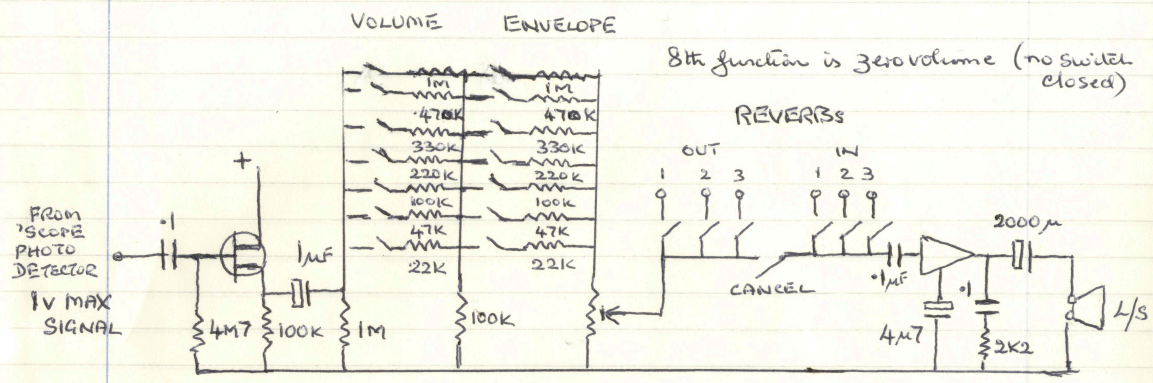 VOLUME ENVELOPE
8th function is zero volume (no switch
closed)
REVERBS
OUT IN
1 2 3 1 2 3
1M 1M
470K 470K
330K 330K
220K 220K
100K 100K
47K 47K
22K 22K
+
FROM
'SCOPE
PHOTO
DETECTOR
1V MAX
SIGNAL
.1
1µF
4M7
100K
1M
100K
CANCEL
.1µF
2000µ
4µ7
.1
2K2
L/S